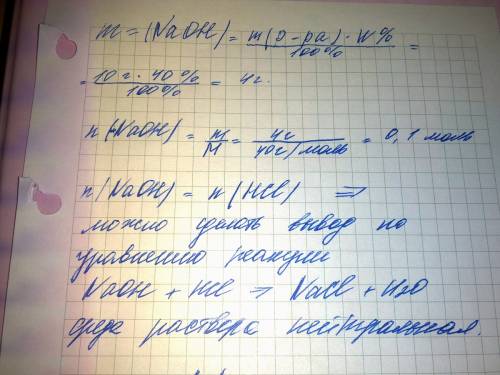 m = (NaOH) = m(р-ра) · W% / 100% =
= 10 г · 40% / 100% = 4г.
n(NaOH) = m / M = 4г / 40г/моль = 0,1 моль
n(NaOH) = n(HCl) ⇒
можно сделать вывод по
уравнению реакции
NaOH + HCl ⇒ NaCl + H2O
среда раствора нейтральная.